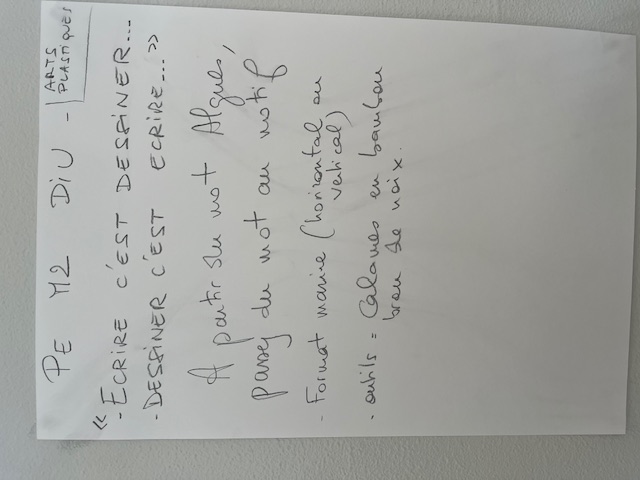 PE M2 DiU - ARTS
PLASTIQUES
«
- ECRIRE C'EST DESSINER...
- DESSINER C'EST ECRIRE... »
A partir du mot Algues,
passez du mot au motif
- Format marine (horizontal ou
vertical)
- outils = Calames en bambou
brou de noix.